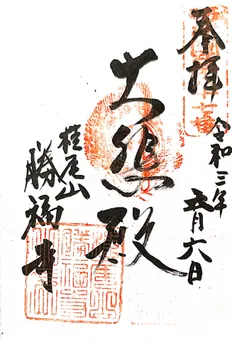 奉拝
令和三年
五月六日
大悲殿
椎尾山
勝福寺